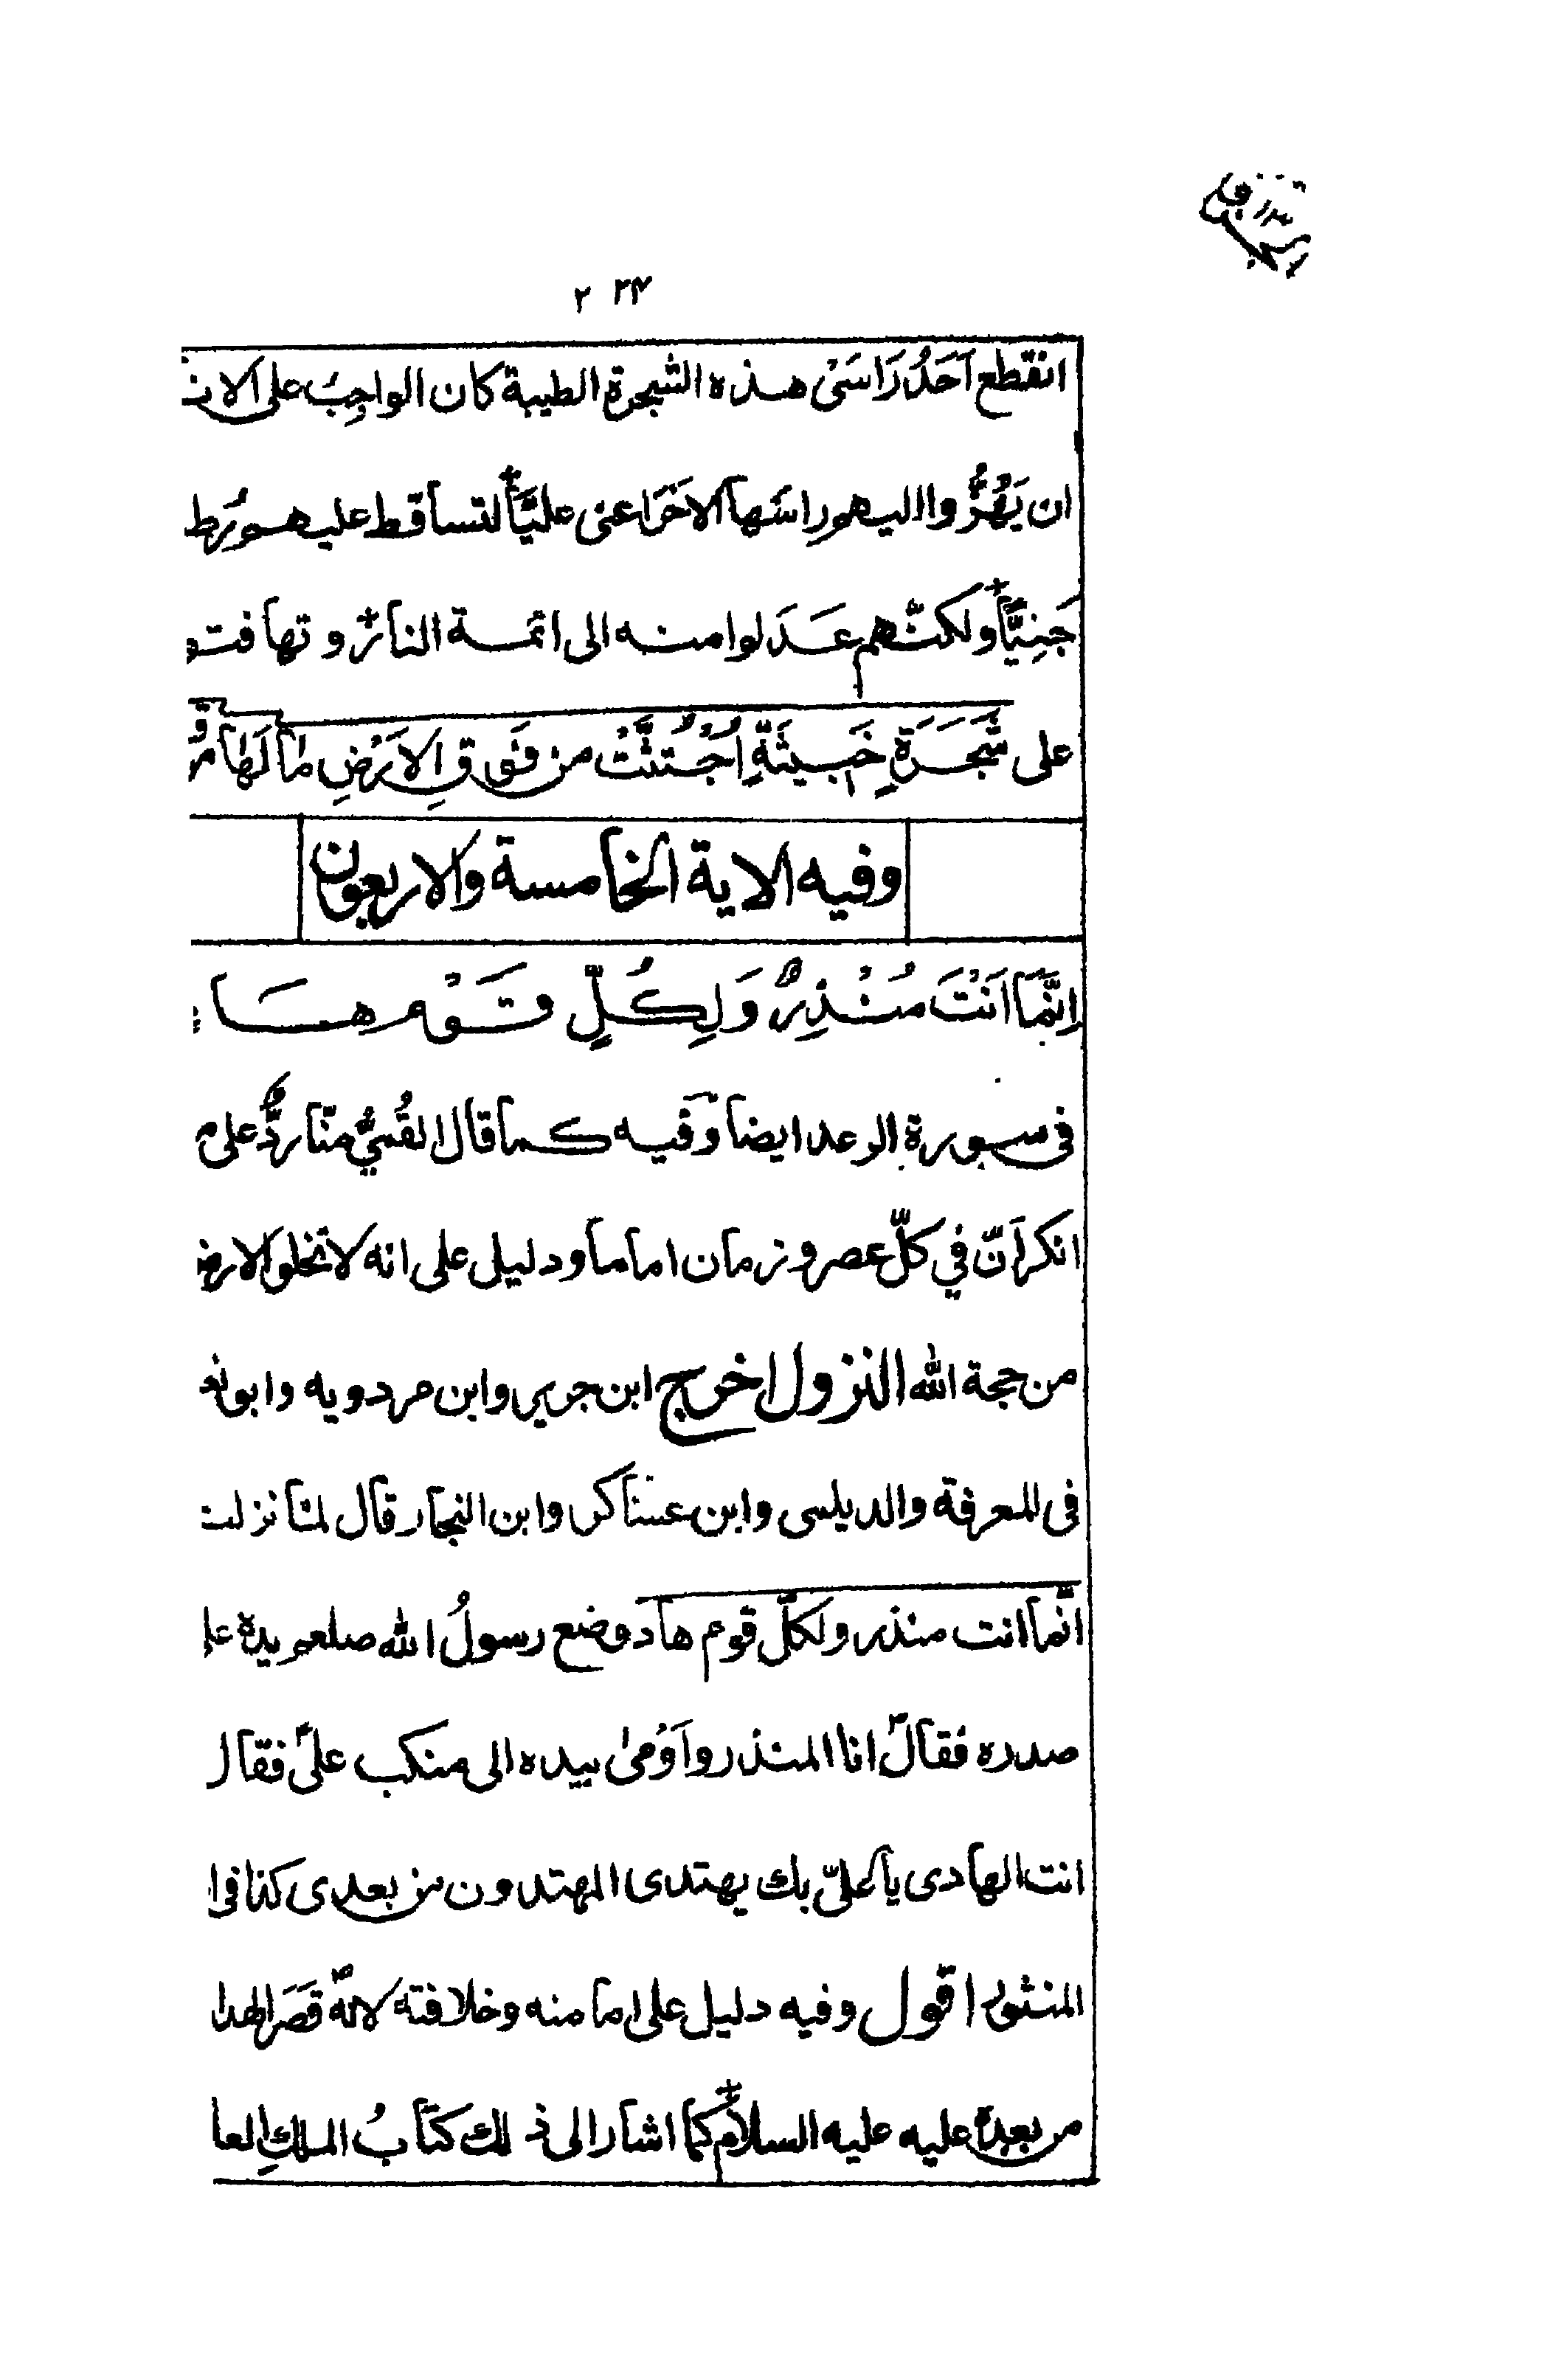 ۲۳۴ ۲
انقطع اَحَدُ رَاسَىْ هذه الشجرة الطيبة كان الواجِبُ على
ان يَهُزُّوا اليهم راسَها الاخَرَ اعنى عليّاً لتساقط عليهم
جَنِيّاً ولكنّهم عَدَلوا منه الى ائمة النار وتهافتو
على شَجَرَةٍ خَبِيثَةِ اِجْتُثَّتْ من فَوقِ الاَرْضِ مٰا لَهٰا
وفيه الاية الخامسة والاربعون
اِنَّمَا اَنْتَ مُنْذِرٌ وَلِكُلِّ قَوْم هَا
فى سورة الرعد ايضا وَفيه كما قال القُمىُّ منّا ردٌّ على
انكر اَنّ في كلّ عصر وزمان اماما ودليل على انه لا تخلو الارض
من حجة الله النزول اخرج ابن جرير وابن مردويه وابو
فى المعرفة والديلمى وابن عساكر وابن النجار قال لمّا نزلت
انّما انت منذر ولكلّ قوم هاد وضع رسولُ الله صلعم يده
صدره فقالؐ انا المنذر واَوْمىٰ بيده الى منكب علىؑ فقال
انت الهادى يا علىّ بك يهتدى المهتدون من بعدى كذا فى
المنثور اقول وفيه دليل على امامته وخلافته لانهؐ قَصَرَ
من بعده عليه عليه السلام كما اشار الى ذلك كتابُ الملكِ